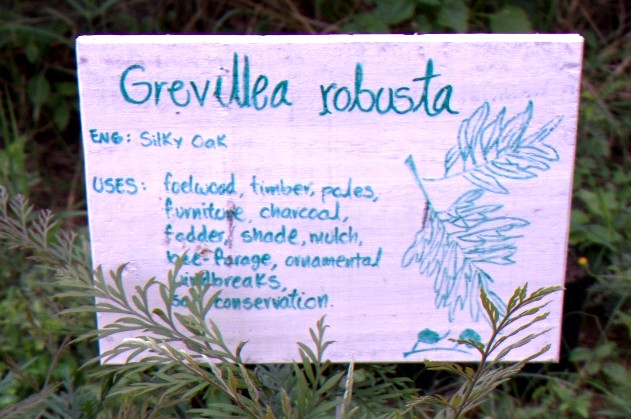 Grevillea robusta
ENG: Silky Oak
USES: foelwood, timber, poles,
furniture, charcoal,
fodder, shade, mulch,
bee-forage, ornamental
windbreaks,
soil conservation.